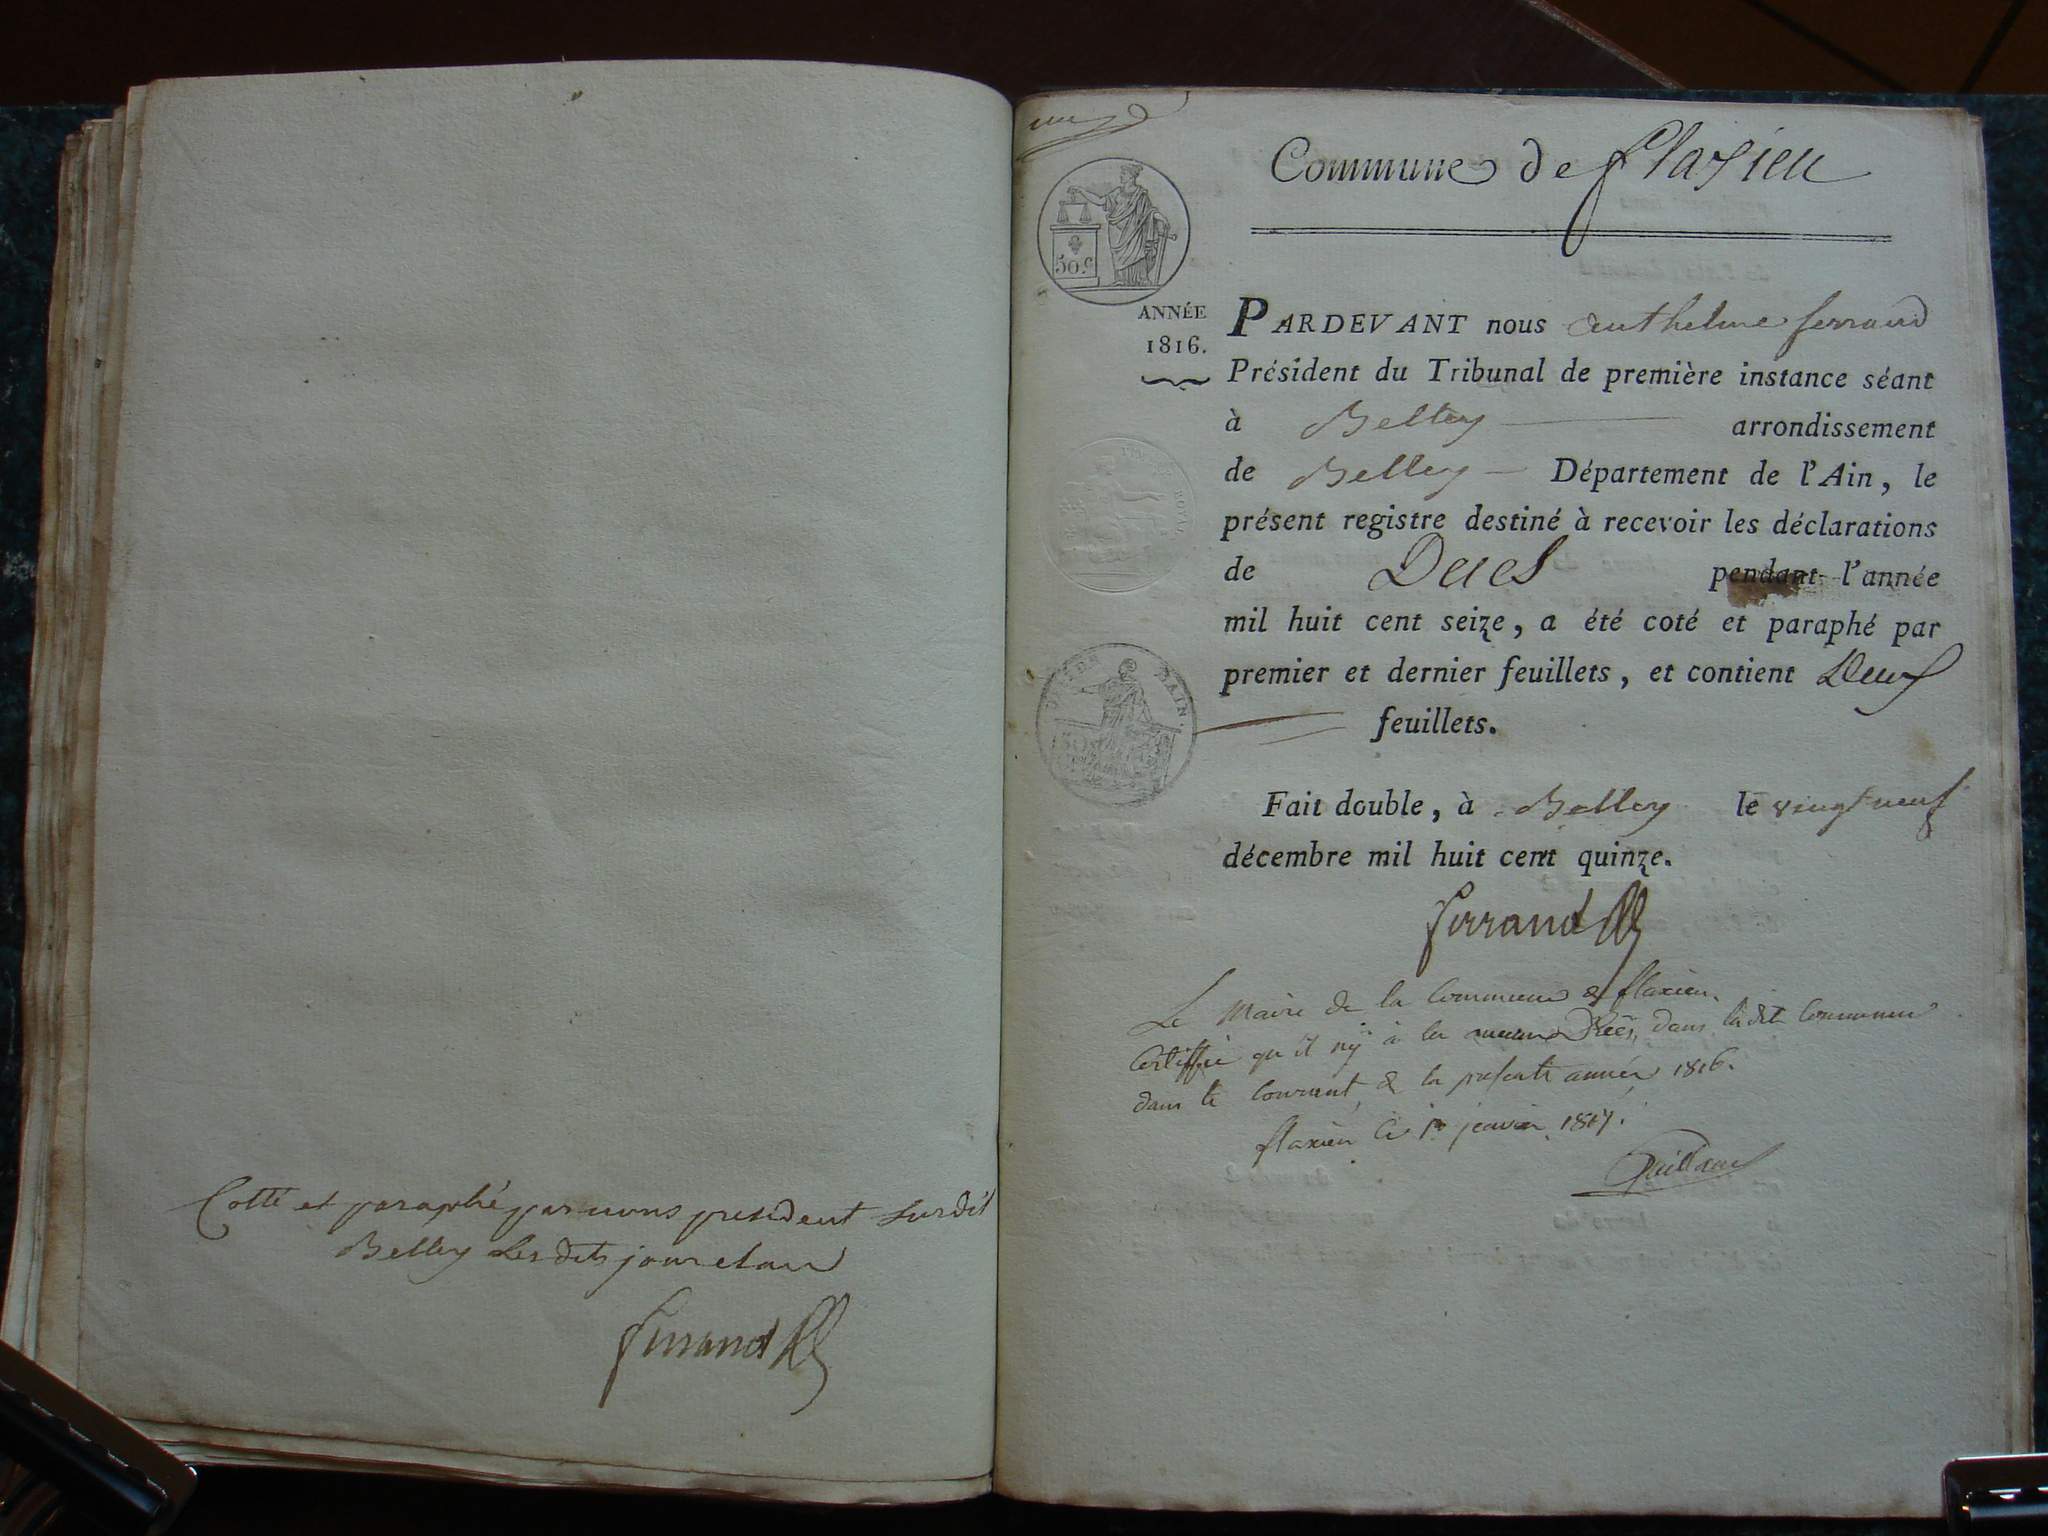 Cotté et paraphé par nous president susdit
Belley les dits jour et an
ferrand
Commune de flaxieu
50 c.
ANNÉE
1816.
PARDEVANT nous Anthelme ferrand
Président du Tribunal de première instance séant
à Belley arrondissement
de Belley Département de l'Ain, le
présent registre destiné à recevoir les déclarations
de Deces pendant l'année
mil huit cent seize, a été coté et paraphé par
premier et dernier feuillets, et contient Deux
feuillets.
Fait double, à Belley le vingt neuf
décembre mil huit cent quinze.
ferrand
Le Maire de la Commune de flaxieu.
Certiffie qu'il n'y à eu aucun Décès, dans la dite Commune
dans le courant, de la presente année 1816.
flaxieu le 1er janvier 1817.